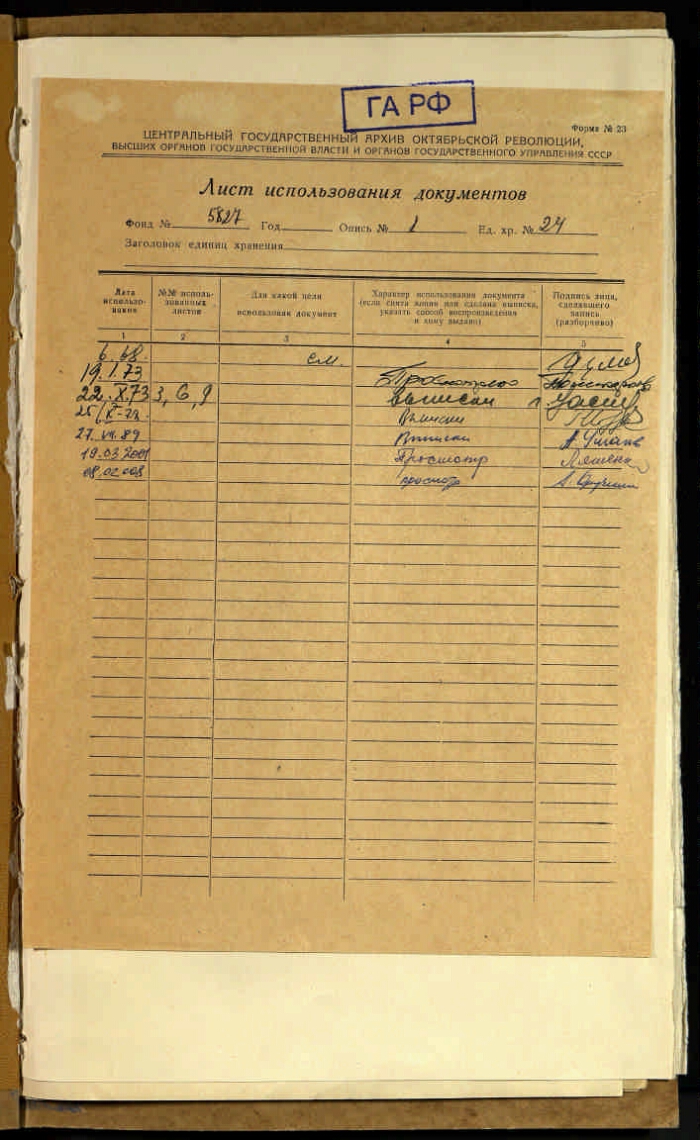 ГА РФ
Форма № 23
ЦЕНТРАЛЬНЫЙ ГОСУДАРСТВЕННЫЙ АРХИВ ОКТЯБРЬСКОЙ РЕВОЛЮЦИИ,
ВЫСШИХ ОРГАНОВ ГОСУДАРСТВЕННОЙ ВЛАСТИ И ОРГАНОВ ГОСУДАРСТВЕННОГО УПРАВЛЕНИЯ СССР
Лист использования документов
Фонд № 5827 Год Опись № 1 Ед. хр. № 24
Заголовок единиц хранения
Дата использо- вания
№№ исполь- зованных листов
Для какой цели использован документ
Характер использования документа (если снята копия или сделана выписка, указать способ воспроизведения и кому выдано)
Подпись лица, сделавшего запись (разборчиво)
1 2 3 4 5
6.68. см.
19.I.73
22.X.73 3, 6, 9 выписки
Выписки
27.VII.89 Выписки
19.03.2001 Просмотр
08.02.008 просмотр